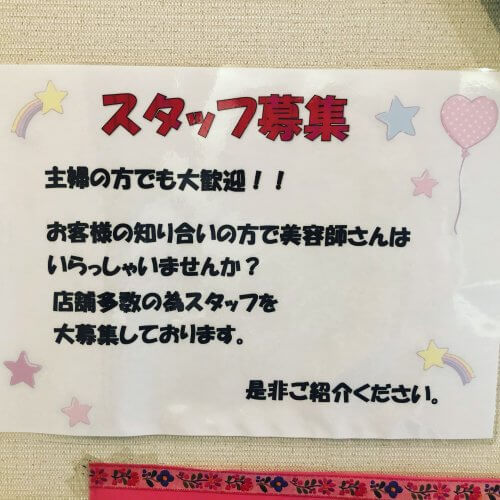 スタッフ募集
主婦の方でも大歓迎！！
お客様の知り合いの方で美容師さんは
いらっしゃいませんか？
店舗多数の為スタッフを
大募集しております。
是非ご紹介ください。